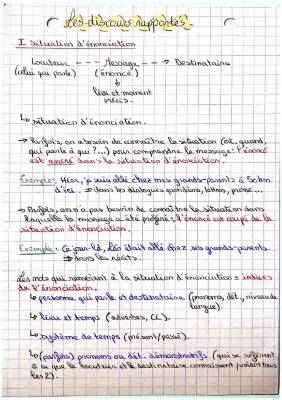 Les discours rapportés.
I Situation d'énonciation
Locuteur - - - Message - - -> Destinataire
(celui qui parle) (énoncé)
↓
lieu et moment
précis.
↳ situation d'énonciation.
→ Parfois, on a besoin de connaître la situation (où, quand,
qui parle à qui ?...) pour comprendre le message : l'énoncé
est ancré dans la situation d'énonciation.
Exemple : Hier, je suis allé chez mes grands-parents à 50km
d'ici. → dans les dialogues quotidiens, lettres, presse...
→ Parfois, on n'a pas besoin de connaître la situation dans
laquelle le message a été proféré : l'énoncé est coupé de la
situation d'énonciation.
Exemple : Ce jour-là, Léo était allé chez ses grands-parents.
→ dans les récits.
Les mots qui renvoient à la situation d'énonciation = indices
de l'énonciation.
↳ personne qui parle et destinataire (pronoms, dét., niveau de
langue).
↳ lieu et temps (adverbes, CC).
↳ système de temps (présent/passé).
↳ (parfois) pronoms ou dét. démonstratifs (qui se réfèrent
à ce que le locuteur et le destinataire connaissent
les 2).